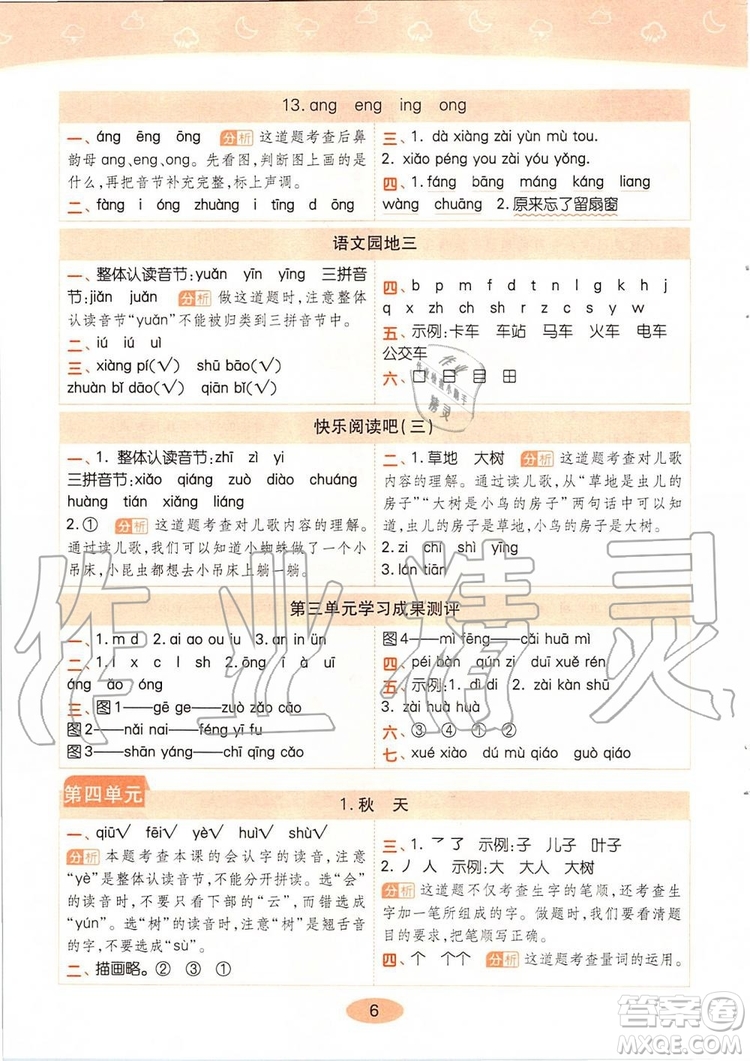 13. ang eng ing ong
一、áng ēng ōng 分析 这道题考查后鼻
韵母ang、eng、ong。先看图,判断图上画的是
什么,再把音节补充完整,标上声调。
二、fàng i óng zhuàng i tīng d ōng
三、1. dà xiàng zài yùn mù tou.
2. xiǎo péng you zài yóu yǒng.
四、1. fáng bāng máng káng liang
wàng chuāng 2. 原来忘了留扇窗
语文园地三
一、整体认读音节:yuǎn yīn yīng 三拼音
节:jiǎn juǎn 分析 做这道题时,注意整体
认读音节“yuǎn”不能被归类到三拼音节中。
二、iú iú uì
三、xiàng pí(√) shū bāo(√)
zhuàn bǐ dāo(√)
四、b p m f d t n l g k h j
q x zh ch sh r z c s y w
五、示例:卡车 车站 马车 火车 电车
公交车
六、口 日 目 田
快乐阅读吧(三)
一、1. 整体认读音节:zhī zì yi
三拼音节:xiǎo qiáng zuò diào chuáng
huàng tián xiǎng liáng
2. ① 分析 这道题考查对儿歌内容的理解。
通过读儿歌,我们可以知道小蜘蛛做了一个小
吊床,小昆虫都想去吊床上躺一躺。
二、1. 草地 大树 分析 这道题考查对儿歌
内容的理解。通过读儿歌,从“草地是虫儿的
房子”“大树是小鸟的房子”两句话中可以知
道,虫儿的房子是草地,小鸟的房子是大树。
2. zi chī shì yīng
3. lán tiān
第三单元学习成果测评
一、1. m d 2. ai ao ou iu 3. an in ün
二、1. l x c l sh 2. ō ī à uī
áng āo óng
三、图1——gē ge——zuò zǎo cāo
图2——nǎi nai——féng yī fu
图3——shān yáng——chī qīng cǎo
图4——mì fēng——cǎi huā mì
四、péi bàn qún zi duī xuě rén
五、示例:1. dì di 2. zài kàn shū
3. zài huà huà
六、③ ④ ① ②
七、xué xiào dú mù qiáo guò qiáo
第四单元
1. 秋 天
一、qiū√ fēi√ yè√ huì√ shù√
分析 本题考查本课的会认字的读音,注意
“yè”是整体认读音节,不能分开拼读。选“会”
的读音时,不要只看下部的“云”,而错选成
“yún”。选“树”的读音时,注意“树”是翘舌音
的字,不要选成“sù”。
二、描画略。② ③ ①
三、1. 乛 了 示例:子 儿子 叶子
2. 丿 人 示例:大 大人 大树
分析 这道题不仅考查生字的笔顺,还考查生
字加一笔所组成的字。做题时,我们要看清题
目的要求,把笔顺书写正确。
四、个 个个 分析 这道题考查量词的运用。
6
作业精灵
作业
精灵
答案圈
MXQE.COM